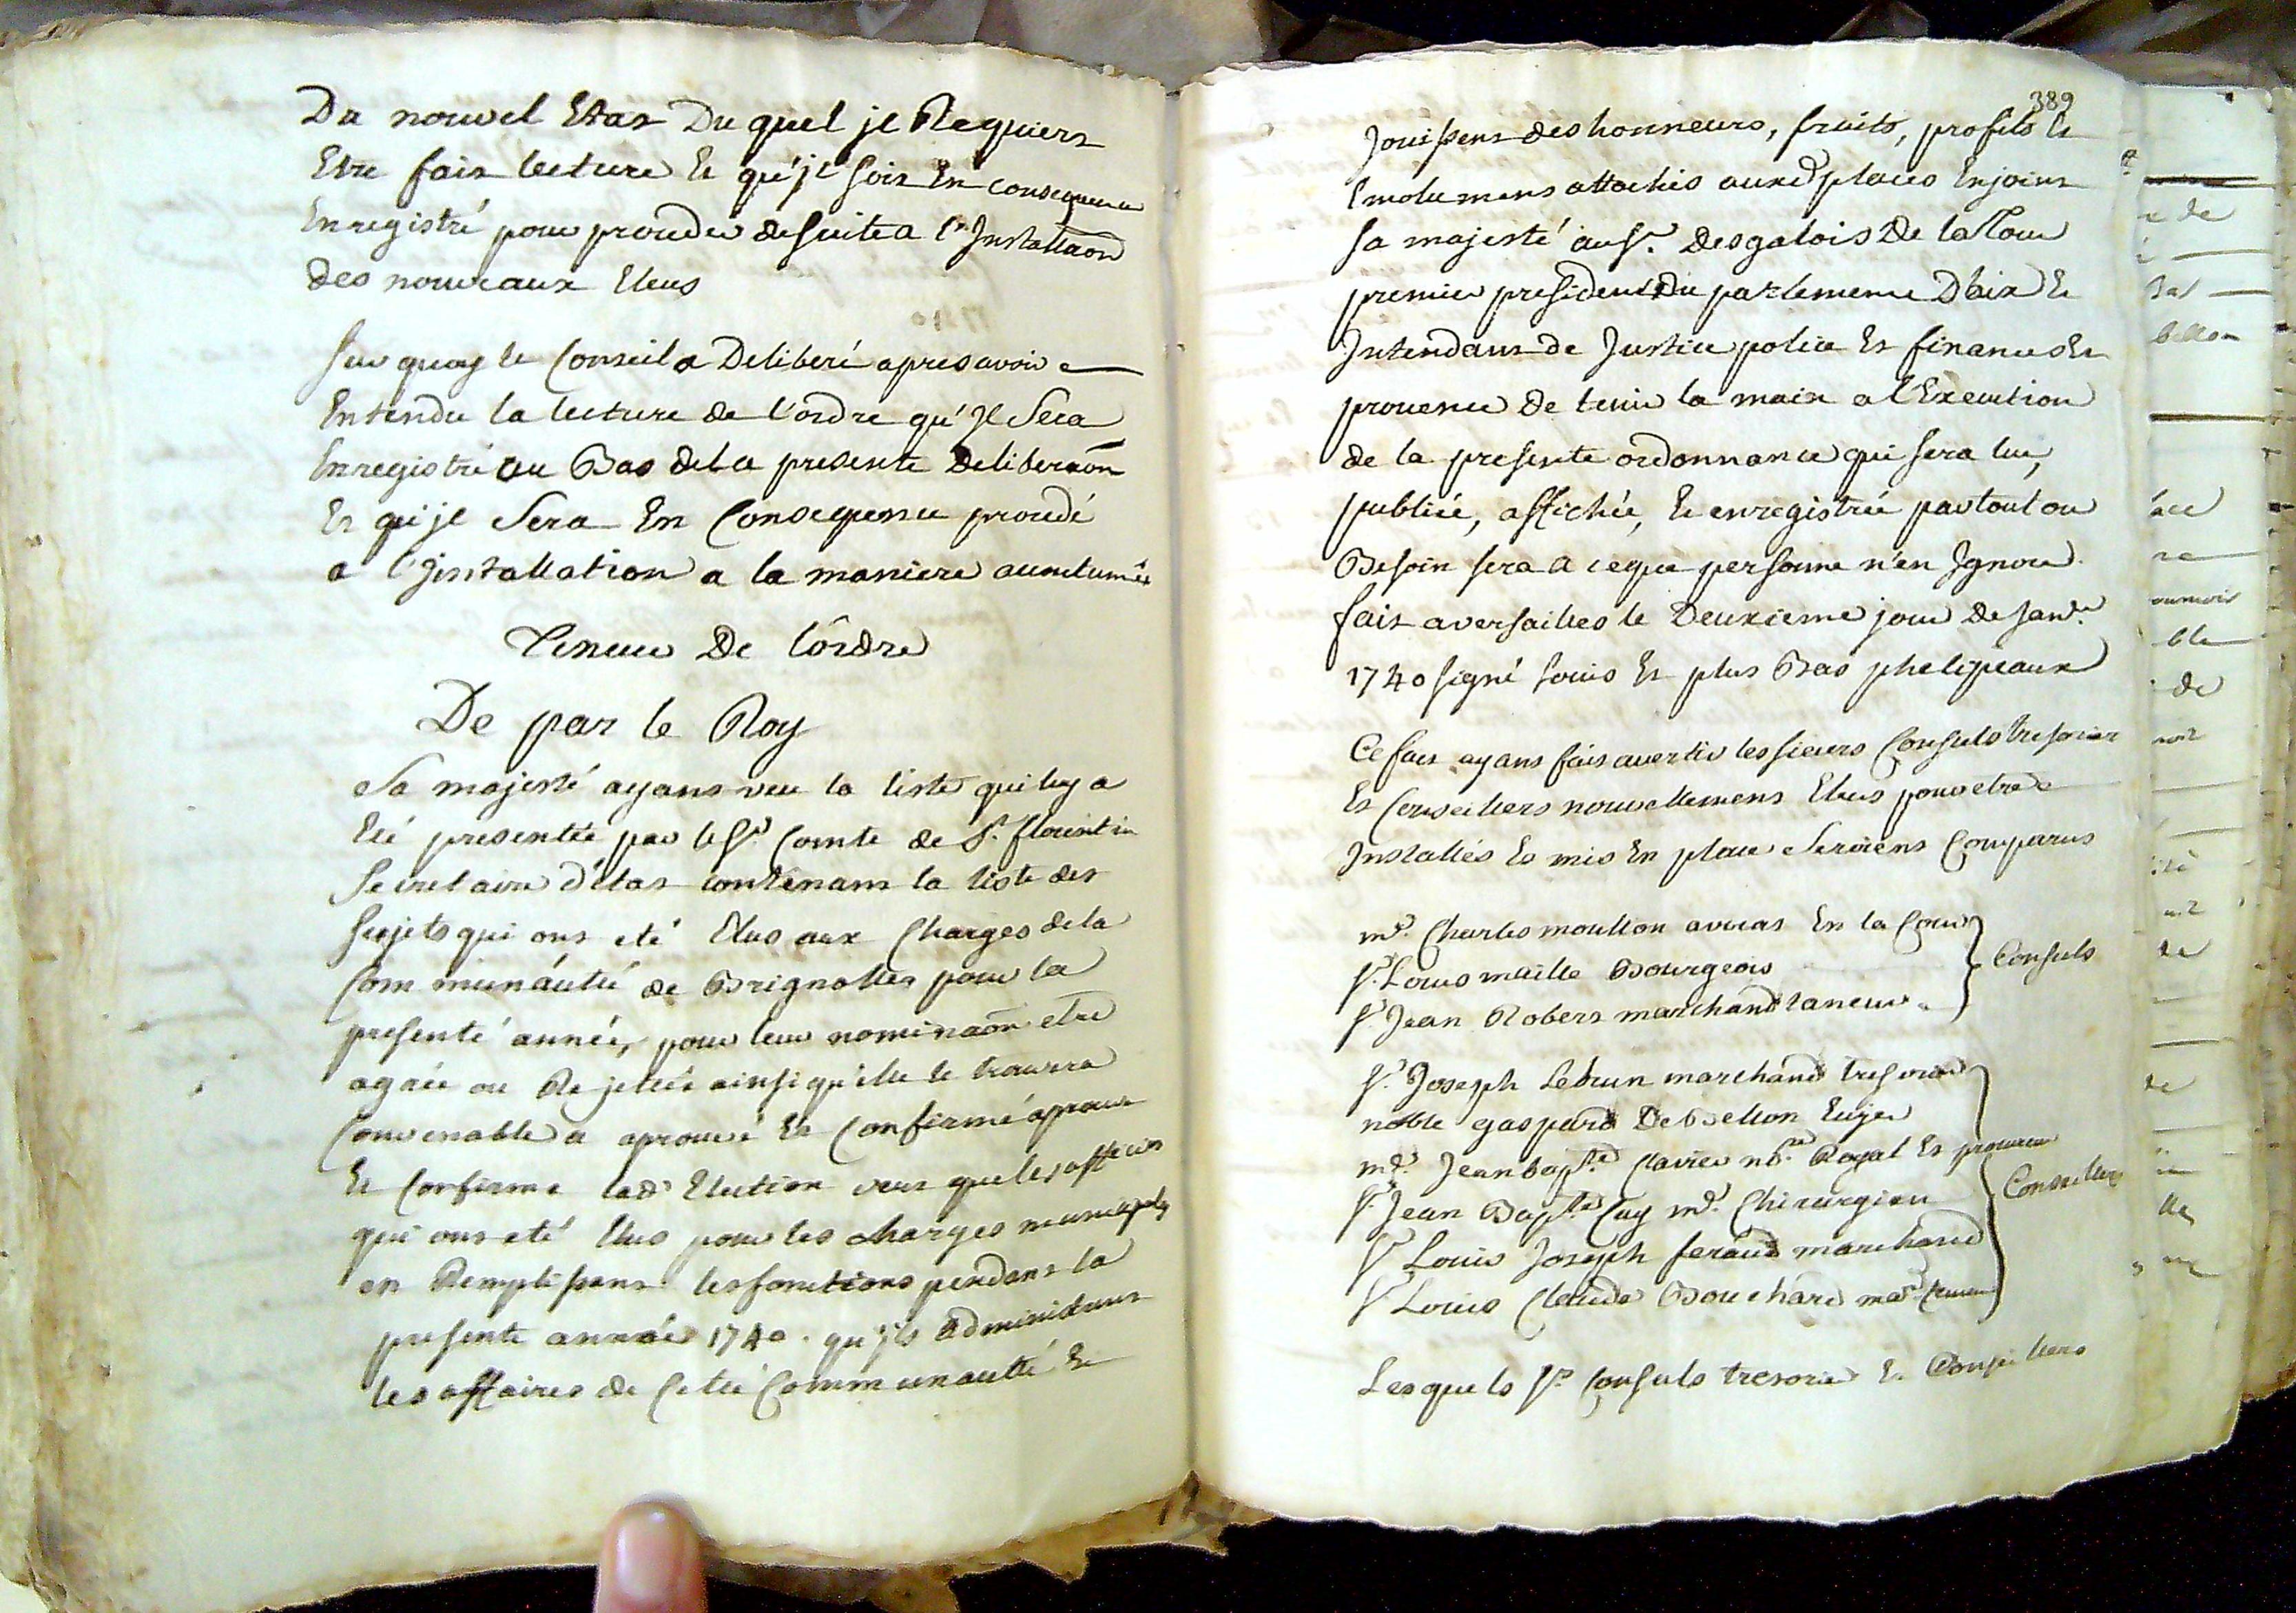 Du nouvel Etat Du quel je Requiers
Etre fait lecture Et qu'jl soit En consequence
Enregistré pour proceder de suite a l'Installaon
des nouveaux Eleus
Sur quoy le Conseil a Deliberé apres avoir
Entendu la lecture de l'ordre qu'Jl Sera
Enregistré au Bas de la presente Deliberaon
Et qu'jl Sera En Consequence procedé
a l'jnstallation a la maniere accoutumée
Teneur De l'ordre
De par le Roy
Sa majesté ayant veu la liste qui luy a
Eté presentée par le Sr. Comte de St. florentin
Secretaire d'état contenant la liste des
Sujets qui ont eté Elus aux Charges de la
Communauté de Brignolles pour la
presente année, pour leur nominaon etre
agréé ou Rejettée ainsi qu'elle le trouvera
Convenable a aprouvé Et Confirmé aprouve
Et Confirme lad. Election veut que les officiers
qui ont eté Elus pour les charges municipales
en Remplissent les fonctions pendant la
presente année 1740. qu'jls administrent
les affaires de Cette Communauté Et
389
Jouissent des honneurs, fruits, profits Et
Emolumens attachés auxd. places Enjoint
Sa majesté au Sr. Desgalois De la Tour
premier president Du parlement D'aix Et
Intendant de Justice police Et finances En
provence De tenir la main a l'Execution
de la presente ordonnance qui sera lue,
publiée, affichée, Et enregistrée partout ou
Besoin sera a ce que personne n'en Ignore.
fait a versailles le Deuxieme jour de Janv.
1740 signé Louis Et plus Bas phelipeaux
Ce fait ayant fait avertir les sieurs Consuls tresorier
Et Conseillers nouvellement Elus pour etre
Installés Et mis En place Seroient Comparus
me. Charles moutton avocat En la Cour
Sr. Louis maille Bourgeois
Sr. Jean Robert marchand taneur
Consuls
Sr. Joseph Lebrun marchand tresorier
noble gaspard De Bellon
me. Jean bapte. Clavier nore. Royal Et procureur
Sr. Jean Bapte. Cuy me. Chirurgien
Sr. Louis Joseph feraud marchand
Sr. Louis Claude Bouchard mard.
Conseillers
Lesquels Srs. Consuls tresorier Et Conseillers